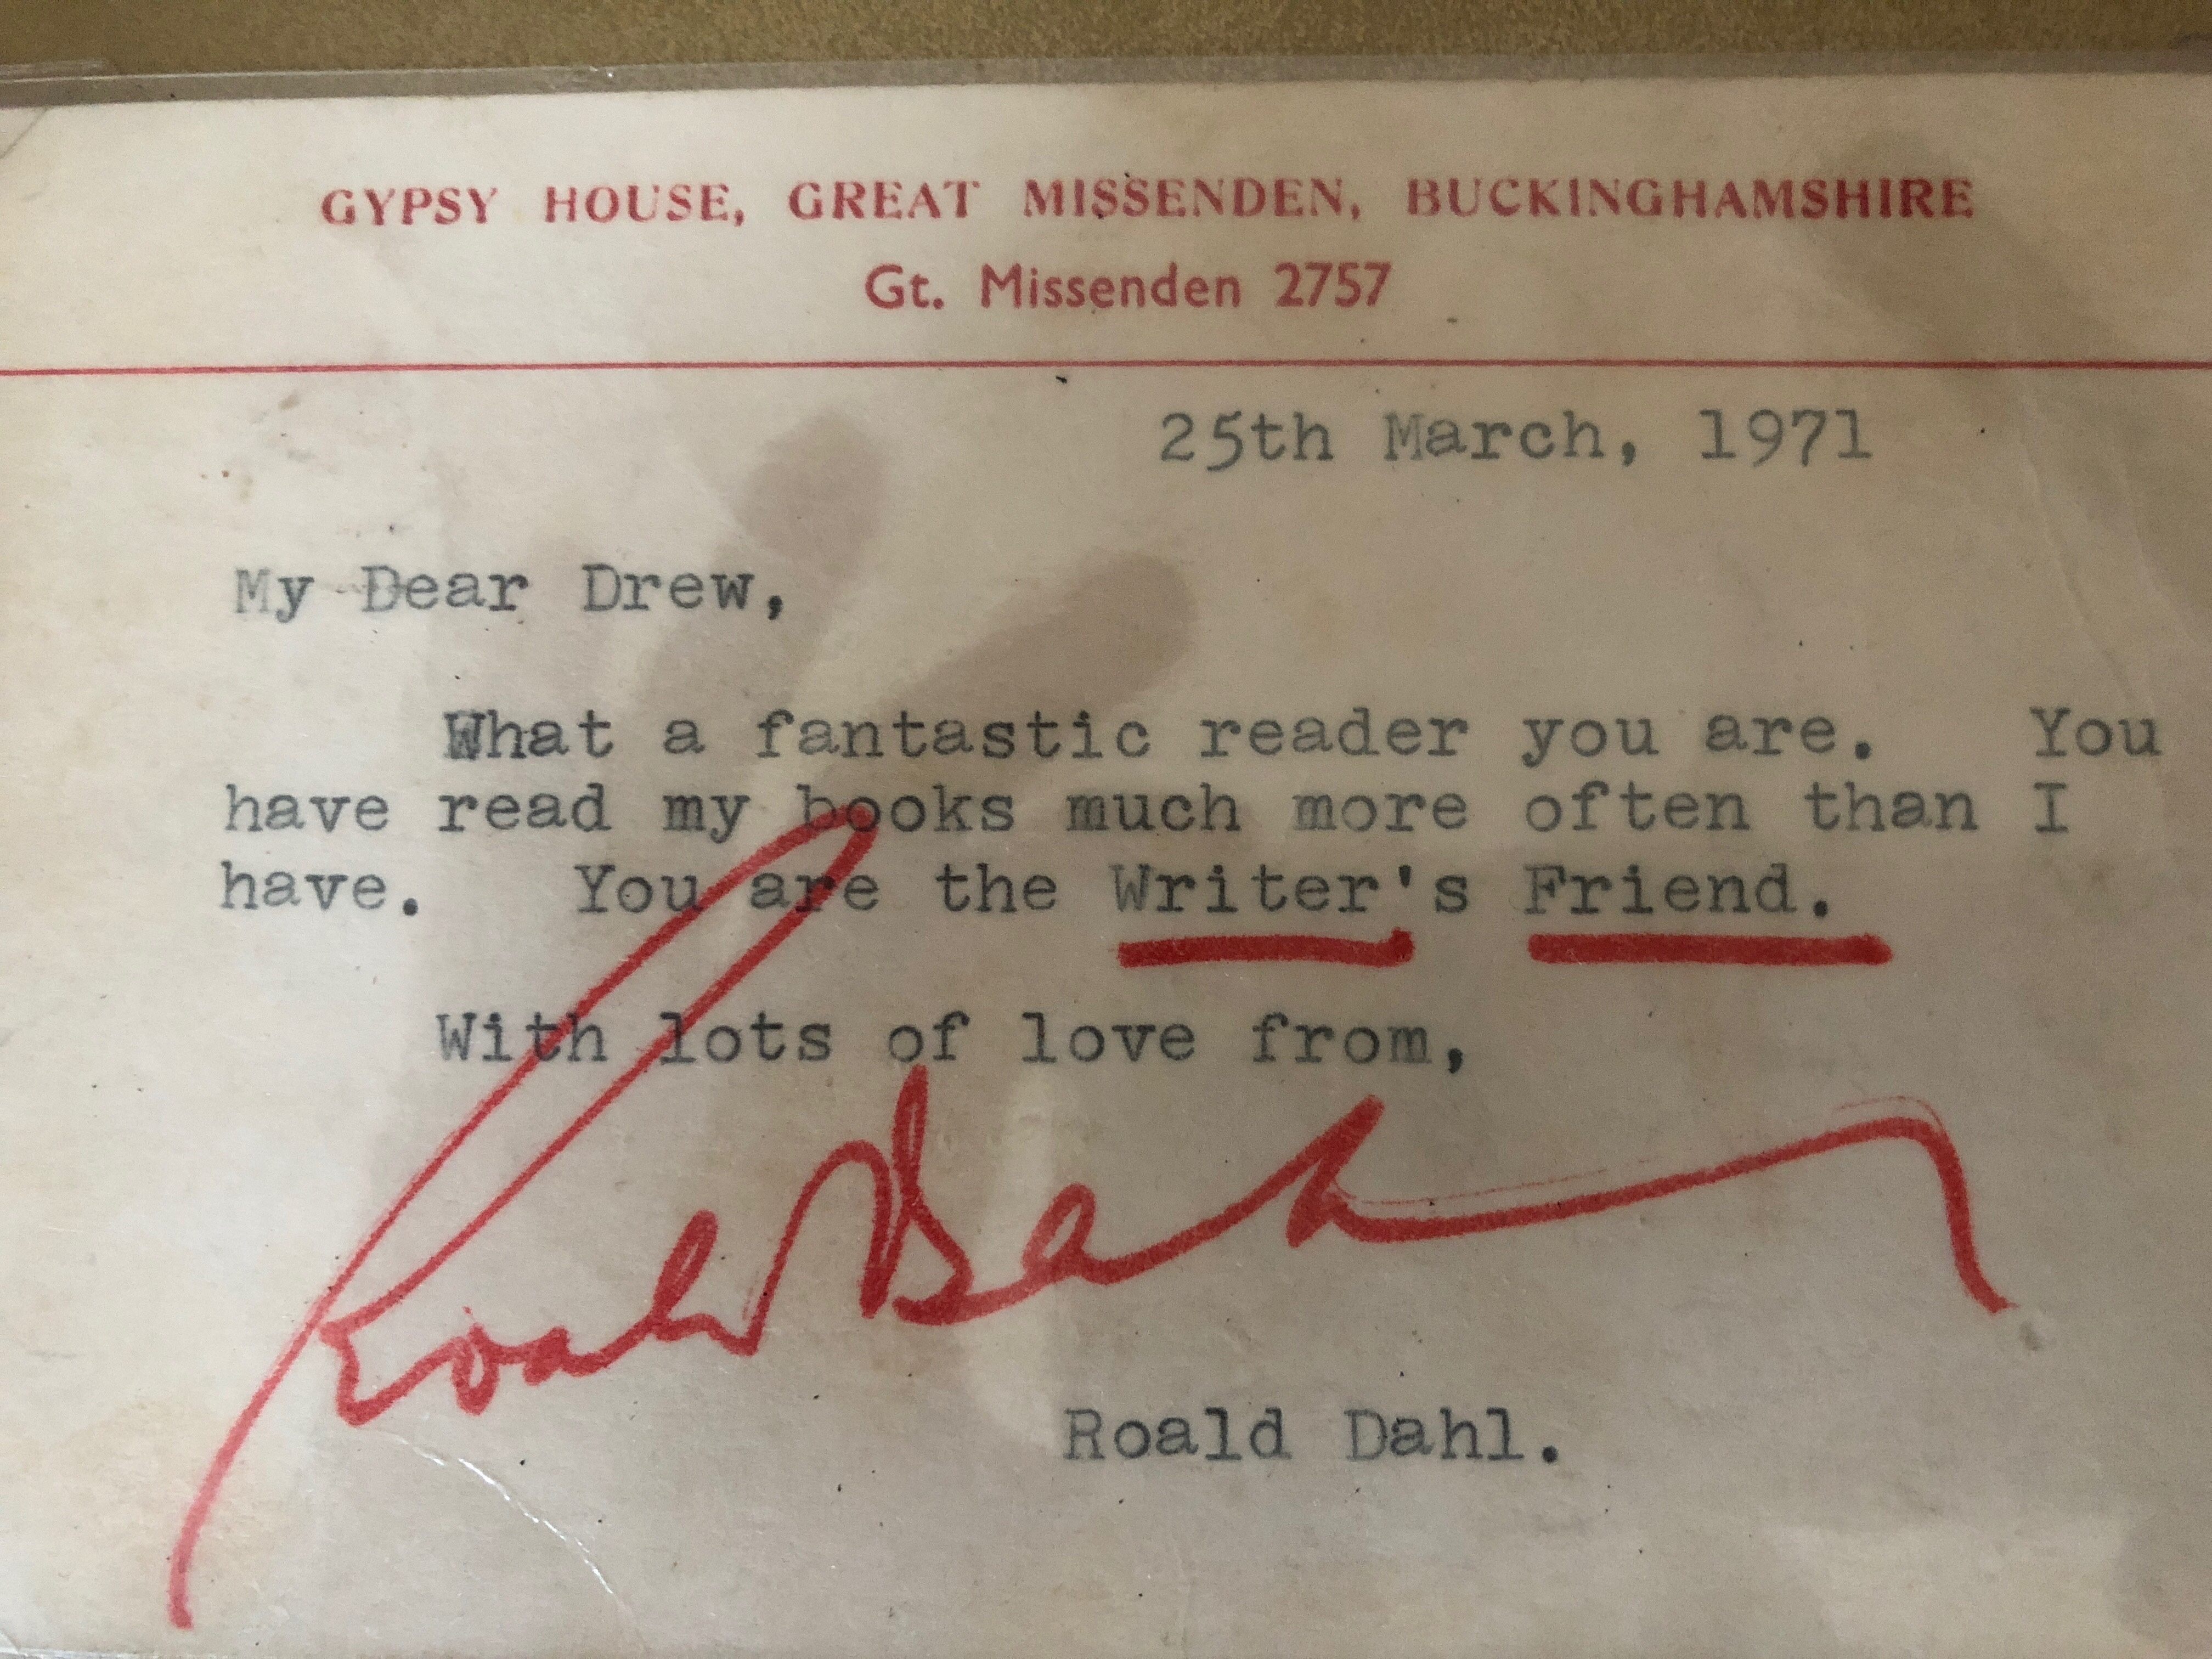 GYPSY HOUSE, GREAT MISSENDEN, BUCKINGHAMSHIRE
Gt. Missenden 2757
25th March, 1971
My Dear Drew,
What a fantastic reader you are. You
have read my books much more often than I
have. You are the Writer's Friend.
With lots of love from,
Roald Dahl
Roald Dahl.